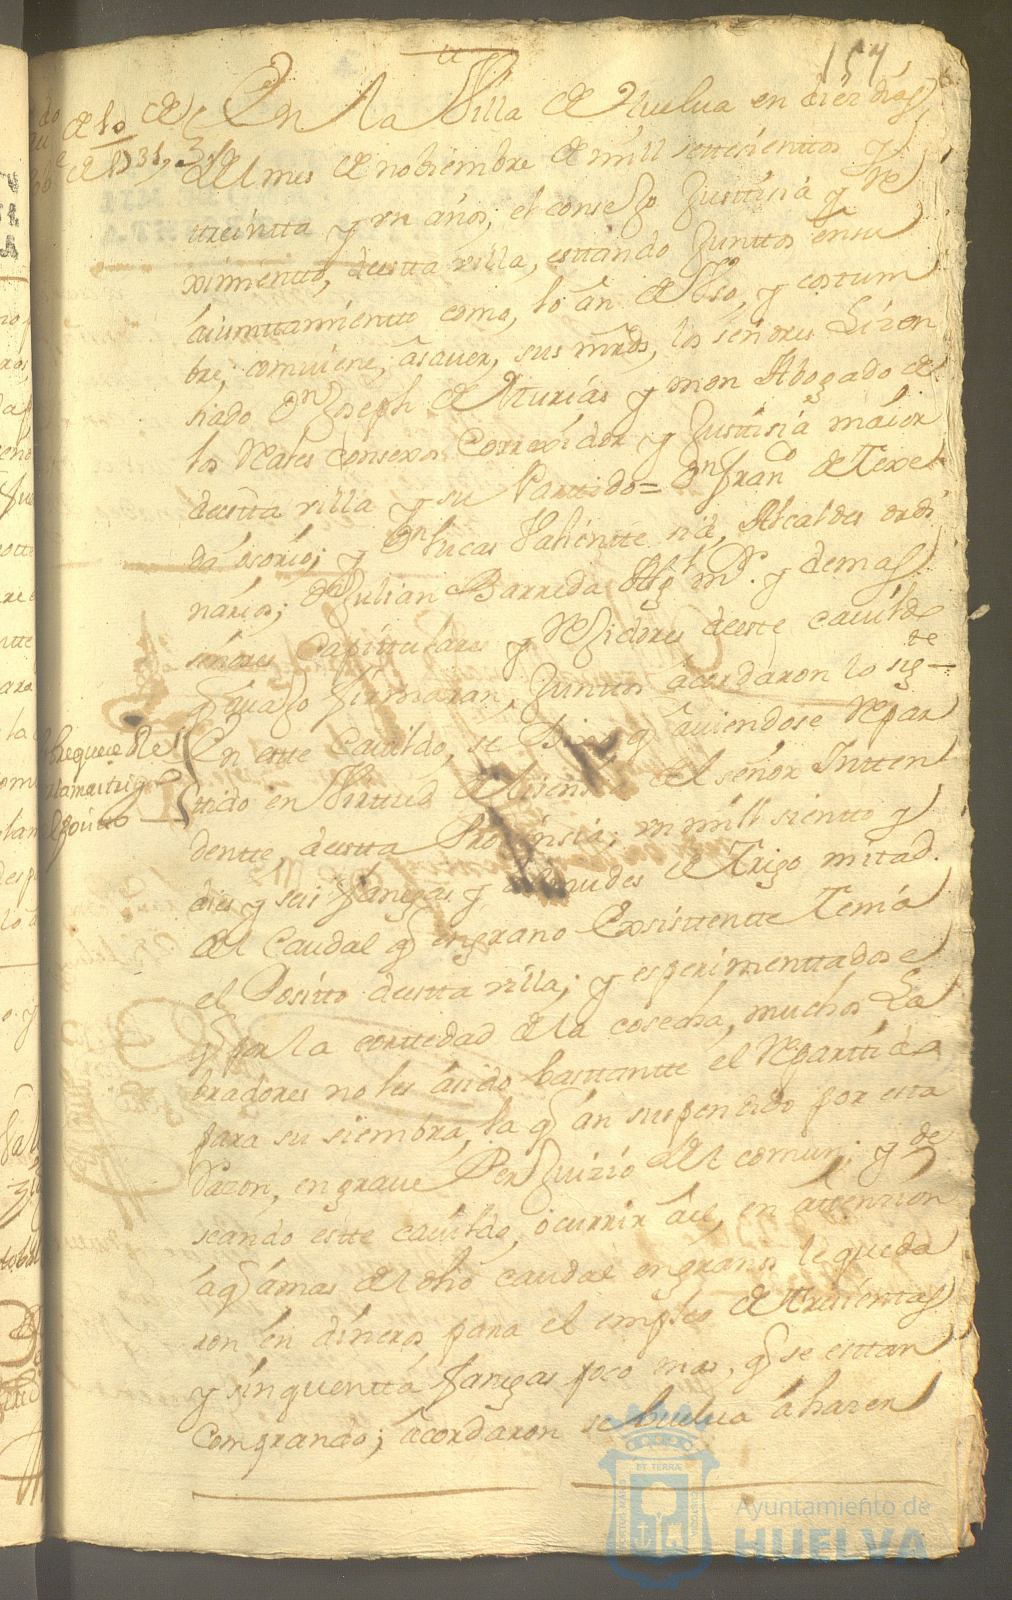 157
En la Villa de Huelua en diez dias
del mes de nobiembre de mill settesienttos y
ttreintta y un años, el consejo Justtisia y re
ximientto, de estta villa, esttando Junttos en su
aiunttamientto como, lo an de Uso, y costum
bre, comuiene, asauer, sus mrds, los señores Lizen
siado Dn Joseph de Atturias y mon Abogado de
los Reales consexos Correxidor y Justtisia maior
de estta villa y su Parttido = Dn Franco de Texe
da osorio; y Dn Lucas Valientte Alcaldes ordi
narios; Dn Julian Barreda Alg.l m.r y demas
señores Capittulares y Rejidores de este cauildo
q auajo firmaran, Junttos acordaron lo sigte
En este Cauildo, se Dixo q auiendose Repar
tido en Virttud de lisensia del señor Intten
dentte, de estta Prouinsia; un mill sientto y
dies y seis fanegas y almudes de Trigo mitad
del Caudal q en grano Exsisttentte Tenia
el Positto de estta villa; y esperimenttadose
q por la corttedad de la cosecha, muchos La
bradores no les a sido basttantte el Reparttido
para su siembra, la q an suspendido por esta
Razon, en graue Perjuizio del comun; y de
seando estte cauildo, ocurrir a el, en attenzion
a q a mas del dho caudal en granos le queda
ron en dineros para el empleo de ttresienttas
y sinquentta fanegas poco mas, q se esttan
comprando; acordaron se buelua a hazer
Ayuntamiento de
HUELVA